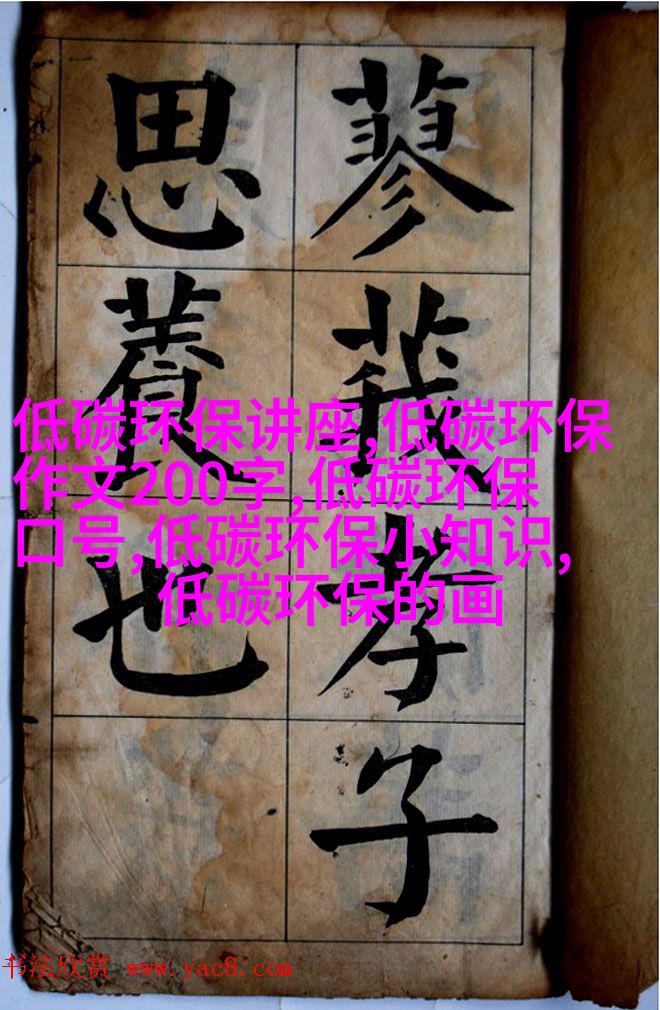 蓼莪孝子
思養也
低碳环保讲座,低碳环保
作文200字,低碳环保
口号,低碳环保小知识,
低碳环保的画
书法欣赏 www.yac8.com